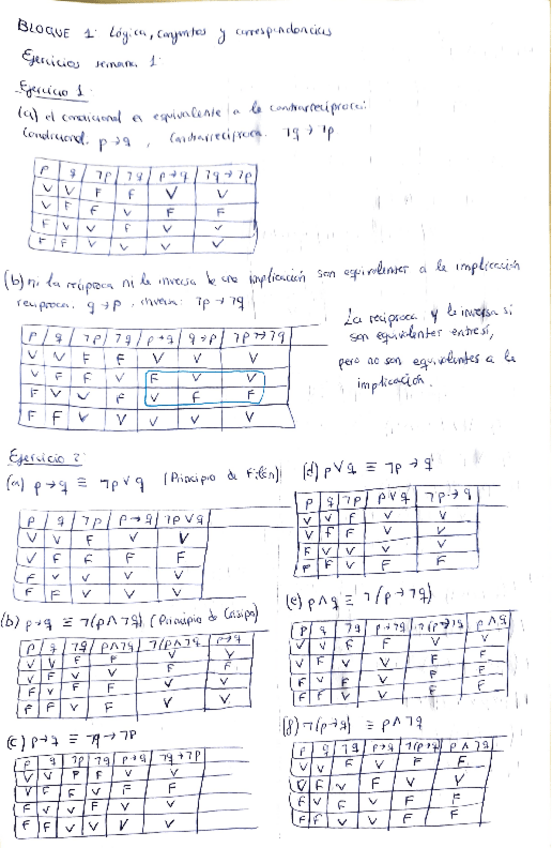 BLOQUE 1: Lógica, conjuntos y correspondencias
Ejercicios semana 1:
Ejercicio 1:
(a) el condicional es equivalente a la contrarrecíproca:
Condicional. p→q , Contrarrecíproca. ¬q→¬p
p | q | ¬p | ¬q | p→q | ¬q→¬p
V | V | F | F | V | V
V | F | F | V | F | F
F | V | V | F | V | V
F | F | V | V | V | V
(b) ni la recíproca ni la inversa de una implicación son equivalentes a la implicación
recíproca. q→p , inversa: ¬p→¬q
p | q | ¬p | ¬q | p→q | q→p | ¬p→¬q
V | V | F | F | V | V | V
V | F | F | V | F | V | V
F | V | V | F | V | F | F
F | F | V | V | V | V | V
La recíproca y la inversa sí
son equivalentes entre sí,
pero no son equivalentes a la
implicación.
Ejercicio 2:
(a) p→q ≡ ¬p∨q (Principio de Filón)
p | q | ¬p | p→q | ¬p∨q
V | V | F | V | V
V | F | F | F | F
F | V | V | V | V
F | F | V | V | V
(b) p→q ≡ ¬(p∧¬q) (Principio de Crisipo)
p | q | ¬q | p∧¬q | ¬(p∧¬q) | p→q
V | V | F | F | V | V
V | F | V | V | F | F
F | V | F | F | V | V
F | F | V | F | V | V
(c) p→q ≡ ¬q→¬p
p | q | ¬p | ¬q | p→q | ¬q→¬p
V | V | F | F | V | V
V | F | F | V | F | F
F | V | V | F | V | V
F | F | V | V | V | V
(d) p∨q ≡ ¬p→q
p | q | ¬p | p∨q | ¬p→q
V | V | F | V | V
V | F | F | V | V
F | V | V | V | V
F | F | V | F | F
(e) p∧q ≡ ¬(p→¬q)
p | q | ¬q | p→¬q | ¬(p→¬q) | p∧q
V | V | F | F | V | V
V | F | V | V | F | F
F | V | F | V | F | F
F | F | V | V | F | F
(f) ¬(p→q) ≡ p∧¬q
p | q | ¬q | p→q | ¬(p→q) | p∧¬q
V | V | F | V | F | F
V | F | V | F | V | V
F | V | F | V | F | F
F | F | V | V | F | F